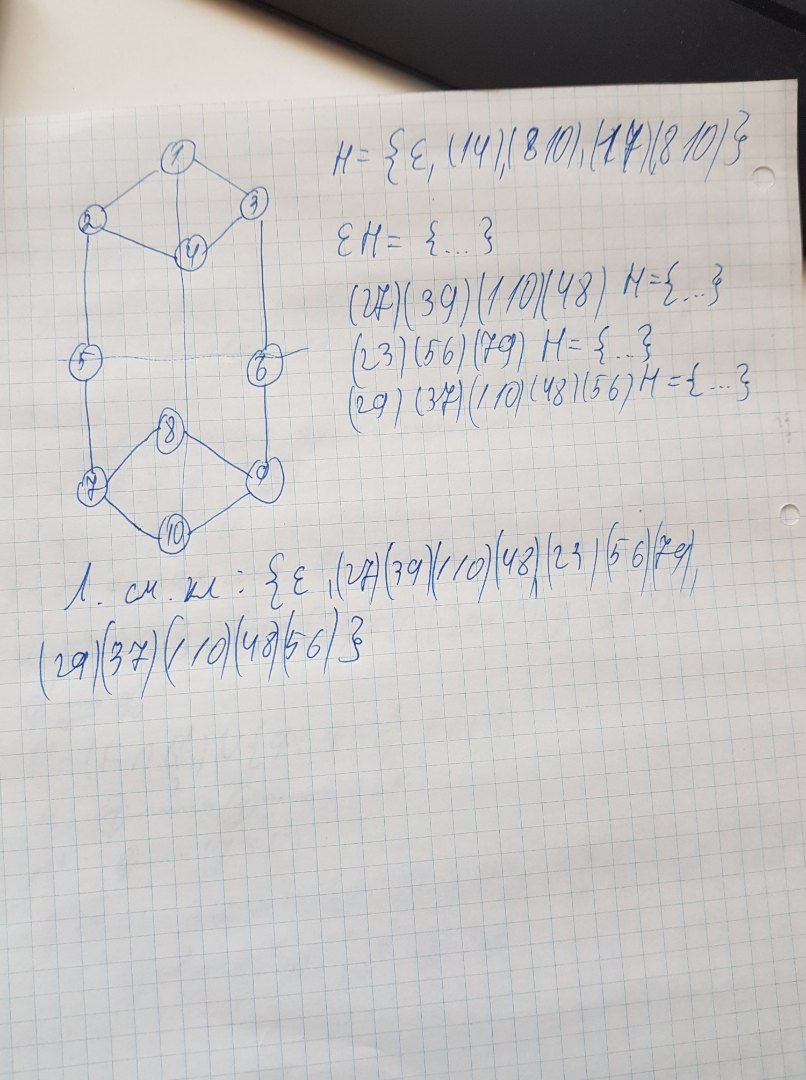 1
2
3
4
5
6
7
8
9
10
H = {ε, (14), (8 10), (14)(8 10)}
εH = {...}
(27)(39)(110)(48) H={...}
(23)(56)(79) H = {...}
(29)(37)(110)(48)(56)H={...}
Л. см. кл: {ε, (27)(39)(110)(48), (23)(56)(79),
(29)(37)(110)(48)(56)}